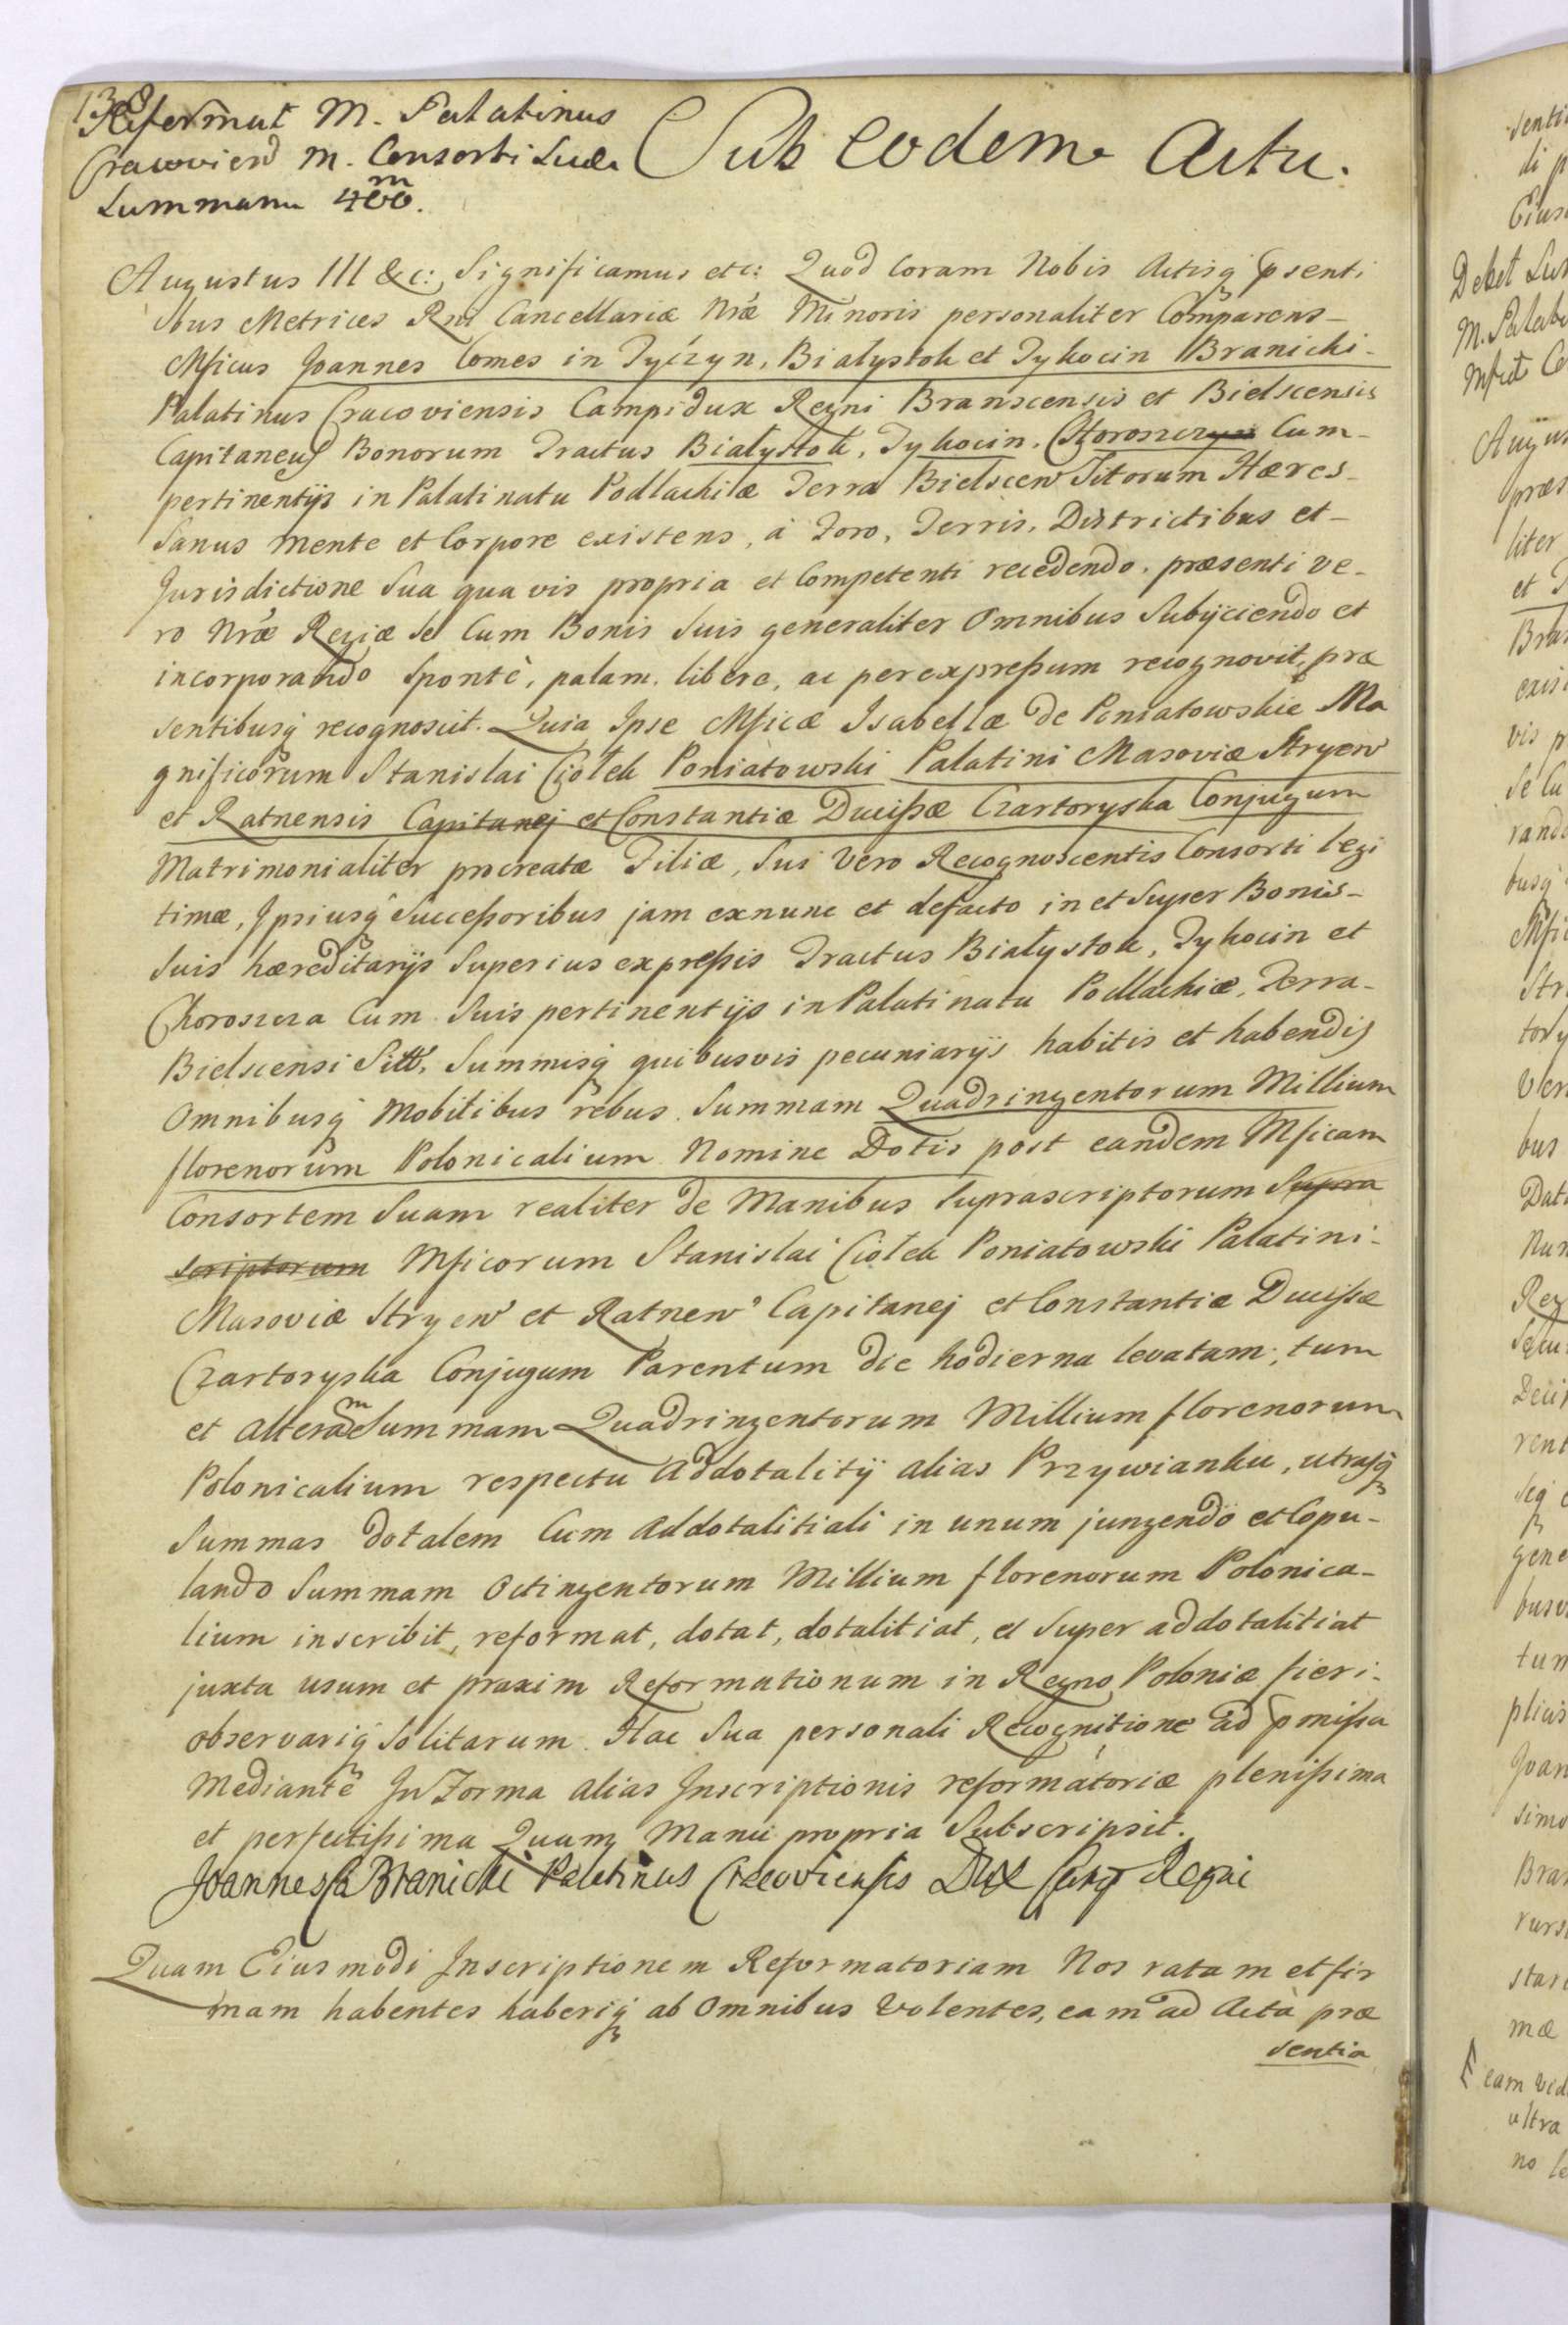 138
Reformat M. Palatinus
Cracovien M. Consorti Suæ
Summam 400 m
Sub eodem Actu.
Augustus III &c: Significamus etc: Quod Coram Nobis Actisq̃ p̃senti
bus Metrices Rni Cancellariæ Nræ Minoris personaliter Comparens
Mficus Joannes Comes in Tyczyn, Białystok et Tykocin Branicki
Palatinus Cracoviensis Campidux Regni Branscensis et Bielscensis
Capitaneus Bonorum Tractus Białystok, Tykocin, Choroszcza Cum
pertinentijs in Palatinatu Podlachiæ Terra Bielscen Sitorum Hæres
Sanus mente et Corpore existens, à Foro, Terris, Districtibus et
Jurisdictione Sua quavis propria et Competenti recedendo, præsenti ve-
ro Nræ Regiæ Se Cum Bonis Suis generaliter Omnibus Subijciendo et
incorporando Spontè, palam, libere, ac per expressum recognovit, præ
sentibusq̃ recognoscit. Quia Ipse Mficæ Isabellæ de Poniatowskie Ma
gnificorum Stanislai Ciołek Poniatowski Palatini Masoviæ Stryen
et Ratnensis Capitanej et Constantiæ Ducissæ Czartoryska Conjugum
Matrimonialiter procreatæ Filiæ, Sui Vero Recognoscentis Consorti legi
timæ, Ipsiusq̃ Successoribus jam exnunc et defacto in et Super Bonis
Suis hæreditarijs Superius expressis Tractus Białystok, Tykocin et
Choroszcza Cum Suis pertinentijs in Palatinatu Podlachiæ, Terra
Bielscensi Sitt, Summisq̃ quibusvis pecuniarijs habitis et habendis
Omnibusq̃ Mobilibus rebus. Summam Quadringentorum Millium
florenorum Polonicalium Nomine Dotis post eandem Mficam
Consortem Suam realiter de Manibus Suprascriptorum Supra
scriptorum Mficorum Stanislai Ciołek Poniatowski Palatini
Masoviæ Stryen et Ratnen Capitanej et Constantiæ Ducissæ
Czartoryska Conjugum Parentum die hodierna levatam, tum
et alteram Summam Quadringentorum Millium florenorum
Polonicalium respectu Addotalitij alias Przywianku, utrasq̃
Summas dotalem Cum Addotalitiali in unum jungendo et Copu-
lando Summam Octingentorum Millium florenorum Polonica-
lium inscribit, reformat, dotat, dotalitiat, et Super addotalitiat
juxta usum et praxim Reformationum in Regno Poloniæ fieri
observariq̃ Solitarum. Hac Sua personali Recognitione ad p̃missa
Mediante In Forma alias Inscriptionis reformatoriæ plenissima
et perfectissima Quam Manu propria Subscripsit.
Joannes C. Branicki Palatinus Cracoviensis Dux Camp Regni
Quam Eiusmodi Inscriptionem Reformatoriam Nos ratam et fir
mam habentes haberiq̃ ab Omnibus Volentes, eam ad Acta præ
sentia